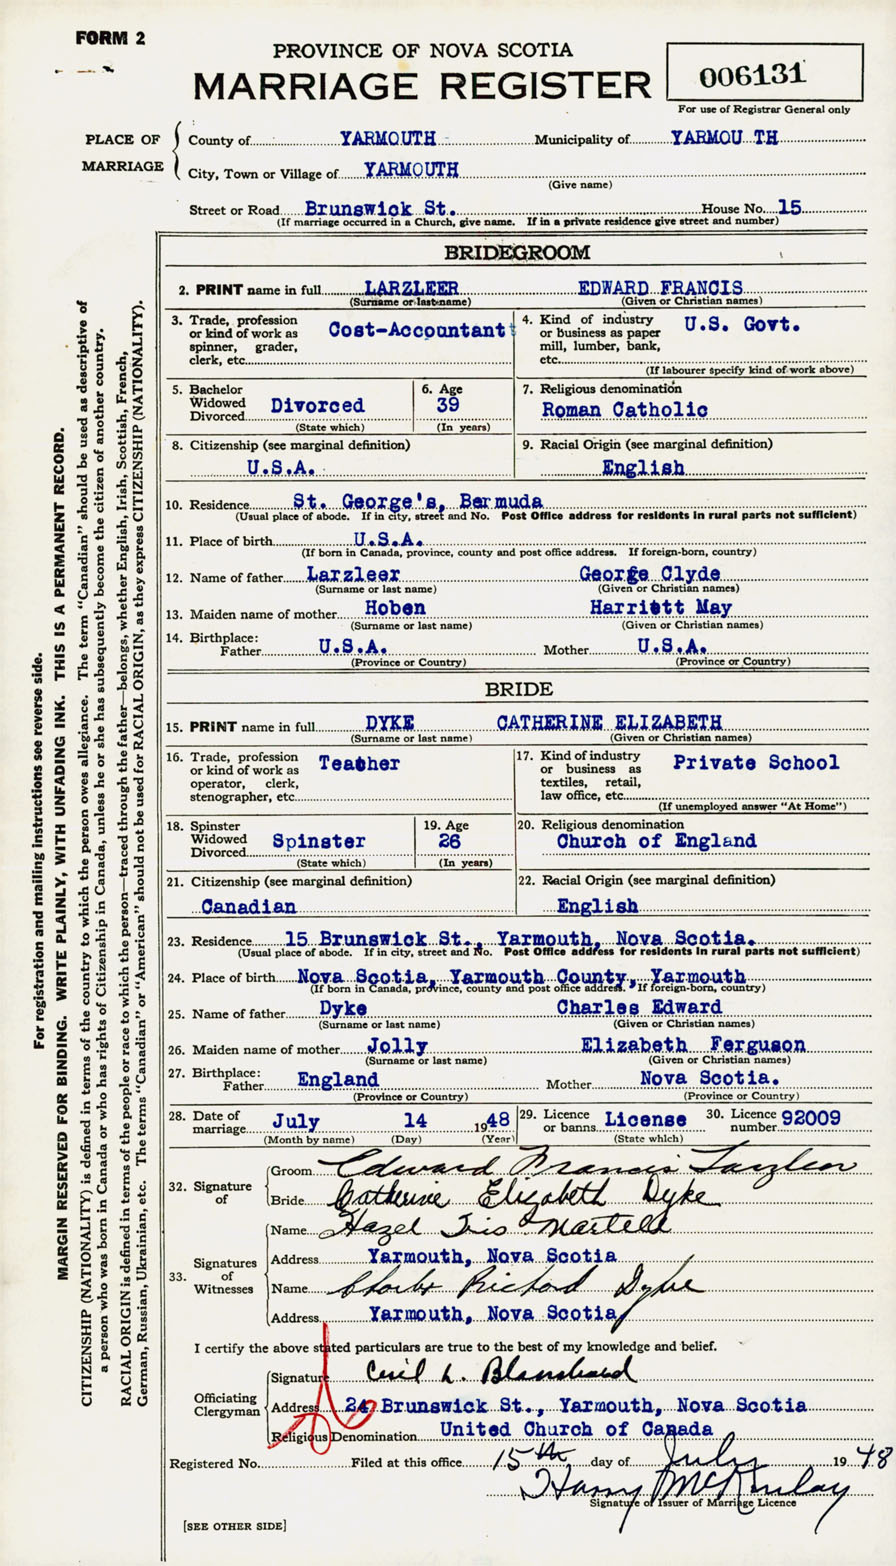 FORM 2
PROVINCE OF NOVA SCOTIA
MARRIAGE REGISTER
006131
For use of Registrar General only
PLACE OF MARRIAGE
County of YARMOUTH Municipality of YARMOU TH
City, Town or Village of YARMOUTH
(Give name)
Street or Road Brunswick St. House No. 15
(If marriage occurred in a Church, give name. If in a private residence give street and number)
BRIDEGROOM
2. PRINT name in full LARZLEER EDWARD FRANCIS
(Surname or last name) (Given or Christian names)
3. Trade, profession or kind of work as spinner, grader, clerk, etc. Cost-Accountant
4. Kind of industry or business as paper mill, lumber, bank, etc. U.S. Govt.
(If labourer specify kind of work above)
5. Bachelor Widowed Divorced Divorced
(State which)
6. Age 39
(In years)
7. Religious denomination
Roman Catholic
8. Citizenship (see marginal definition)
U.S.A.
9. Racial Origin (see marginal definition)
English
10. Residence St. George's, Bermuda
(Usual place of abode. If in city, street and No. Post Office address for residents in rural parts not sufficient)
11. Place of birth U.S.A.
(If born in Canada, province, county and post office address. If foreign-born, country)
12. Name of father Larzleer George Clyde
(Surname or last name) (Given or Christian names)
13. Maiden name of mother Hoben Harriett May
(Surname or last name) (Given or Christian names)
14. Birthplace:
Father U.S.A. Mother U.S.A.
(Province or Country) (Province or Country)
BRIDE
15. PRINT name in full DYKE CATHERINE ELIZABETH
(Surname or last name) (Given or Christian names)
16. Trade, profession or kind of work as operator, clerk, stenographer, etc. Teacher
17. Kind of industry or business as textiles, retail, law office, etc. Private School
(If unemployed answer "At Home")
18. Spinster Widowed Divorced Spinster
(State which)
19. Age 26
(In years)
20. Religious denomination
Church of England
21. Citizenship (see marginal definition)
Canadian
22. Racial Origin (see marginal definition)
English
23. Residence 15 Brunswick St., Yarmouth, Nova Scotia.
(Usual place of abode. If in city, street and No. Post Office address for residents in rural parts not sufficient)
24. Place of birth Nova Scotia, Yarmouth County, Yarmouth
(If born in Canada, province, county and post office address. If foreign-born, country)
25. Name of father Dyke Charles Edward
(Surname or last name) (Given or Christian names)
26. Maiden name of mother Jolly Elizabeth Ferguson
(Surname or last name) (Given or Christian names)
27. Birthplace:
Father England Mother Nova Scotia.
(Province or Country) (Province or Country)
28. Date of marriage July 14 1948
(Month by name) (Day) (Year)
29. Licence or banns License
(State which)
30. Licence number 92009
32. Signature of
Groom Edward Francis Larzleer
Bride Catherine Elizabeth Dyke
33. Signatures of Witnesses
Name Hazel Iris Martell
Address Yarmouth, Nova Scotia
Name Charles Richard Dyke
Address Yarmouth, Nova Scotia
I certify the above stated particulars are true to the best of my knowledge and belief.
Officiating Clergyman
Signature Cecil L. Blanchard
Address 24 Brunswick St., Yarmouth, Nova Scotia
Religious Denomination United Church of Canada
Registered No. Filed at this office 15th day of July 1948
Harry McKinlay
Signature of Issuer of Marriage Licence
[SEE OTHER SIDE]
For registration and mailing instructions see reverse side.
MARGIN RESERVED FOR BINDING. WRITE PLAINLY, WITH UNFADING INK. THIS IS A PERMANENT RECORD.
CITIZENSHIP (NATIONALITY) is defined in terms of the country to which the person owes allegiance. The term "Canadian" should be used as descriptive of
a person who was born in Canada or who has rights of Citizenship in Canada, unless he or she has subsequently become the citizen of another country.
RACIAL ORIGIN is defined in terms of the people or race to which the person—traced through the father—belongs, whether English, Irish, Scottish, French,
German, Russian, Ukrainian, etc. The terms "Canadian" or "American" should not be used for RACIAL ORIGIN, as they express CITIZENSHIP (NATIONALITY).